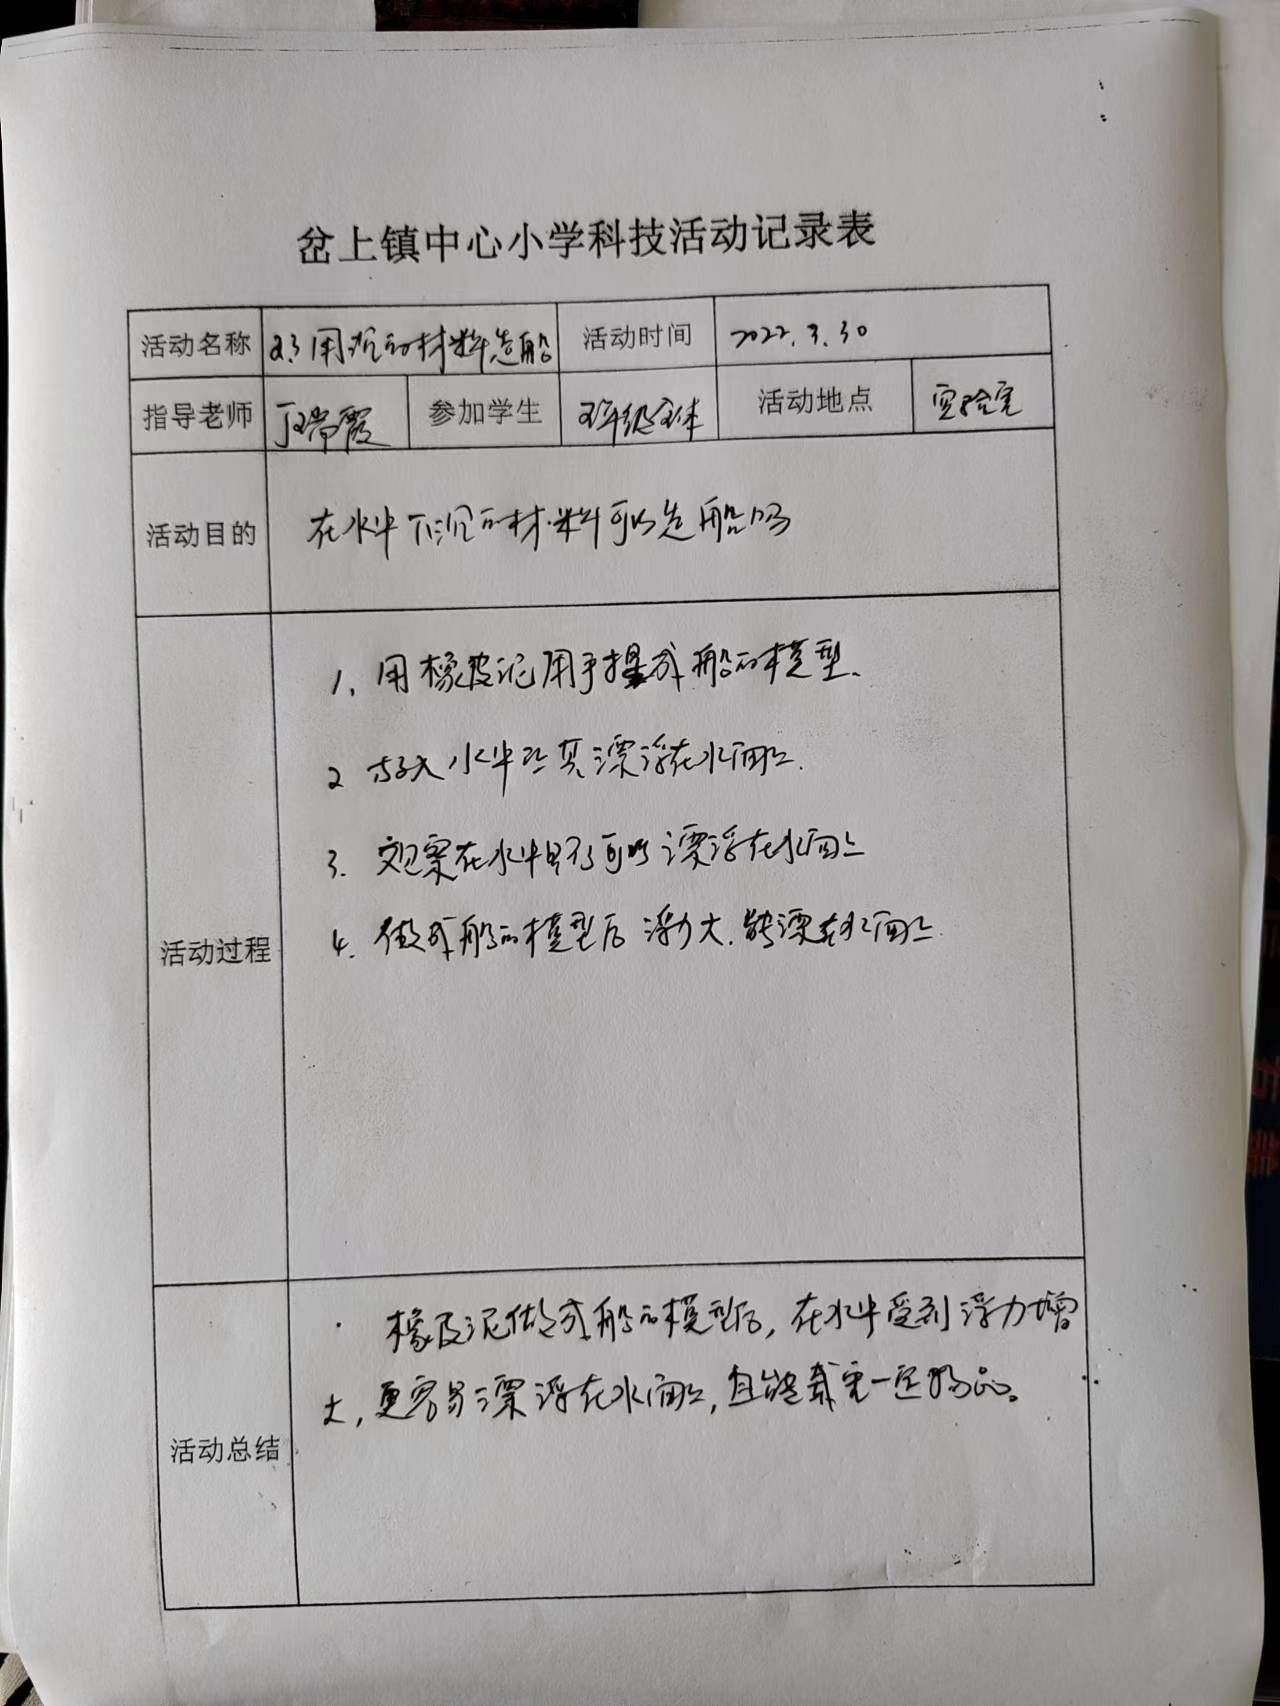 岔上镇中心小学科技活动记录表
活动名称 2.3用沉的材料造船 活动时间 2022.3.30
指导老师 丁瑞霞 参加学生 五年级全体 活动地点 实验室
活动目的 在水中下沉的材料可以造船吗
活动过程
1、用橡皮泥用手捏成船的模型、
2 放入水中让其漂浮在水面上.
3. 观察在水中是否可以漂浮在水面上
4. 做成船的模型后浮力大.能漂在水面上
活动总结
橡皮泥做成船的模型后,在水中受到浮力增
大,更容易漂浮在水面上,且能载一定物品。